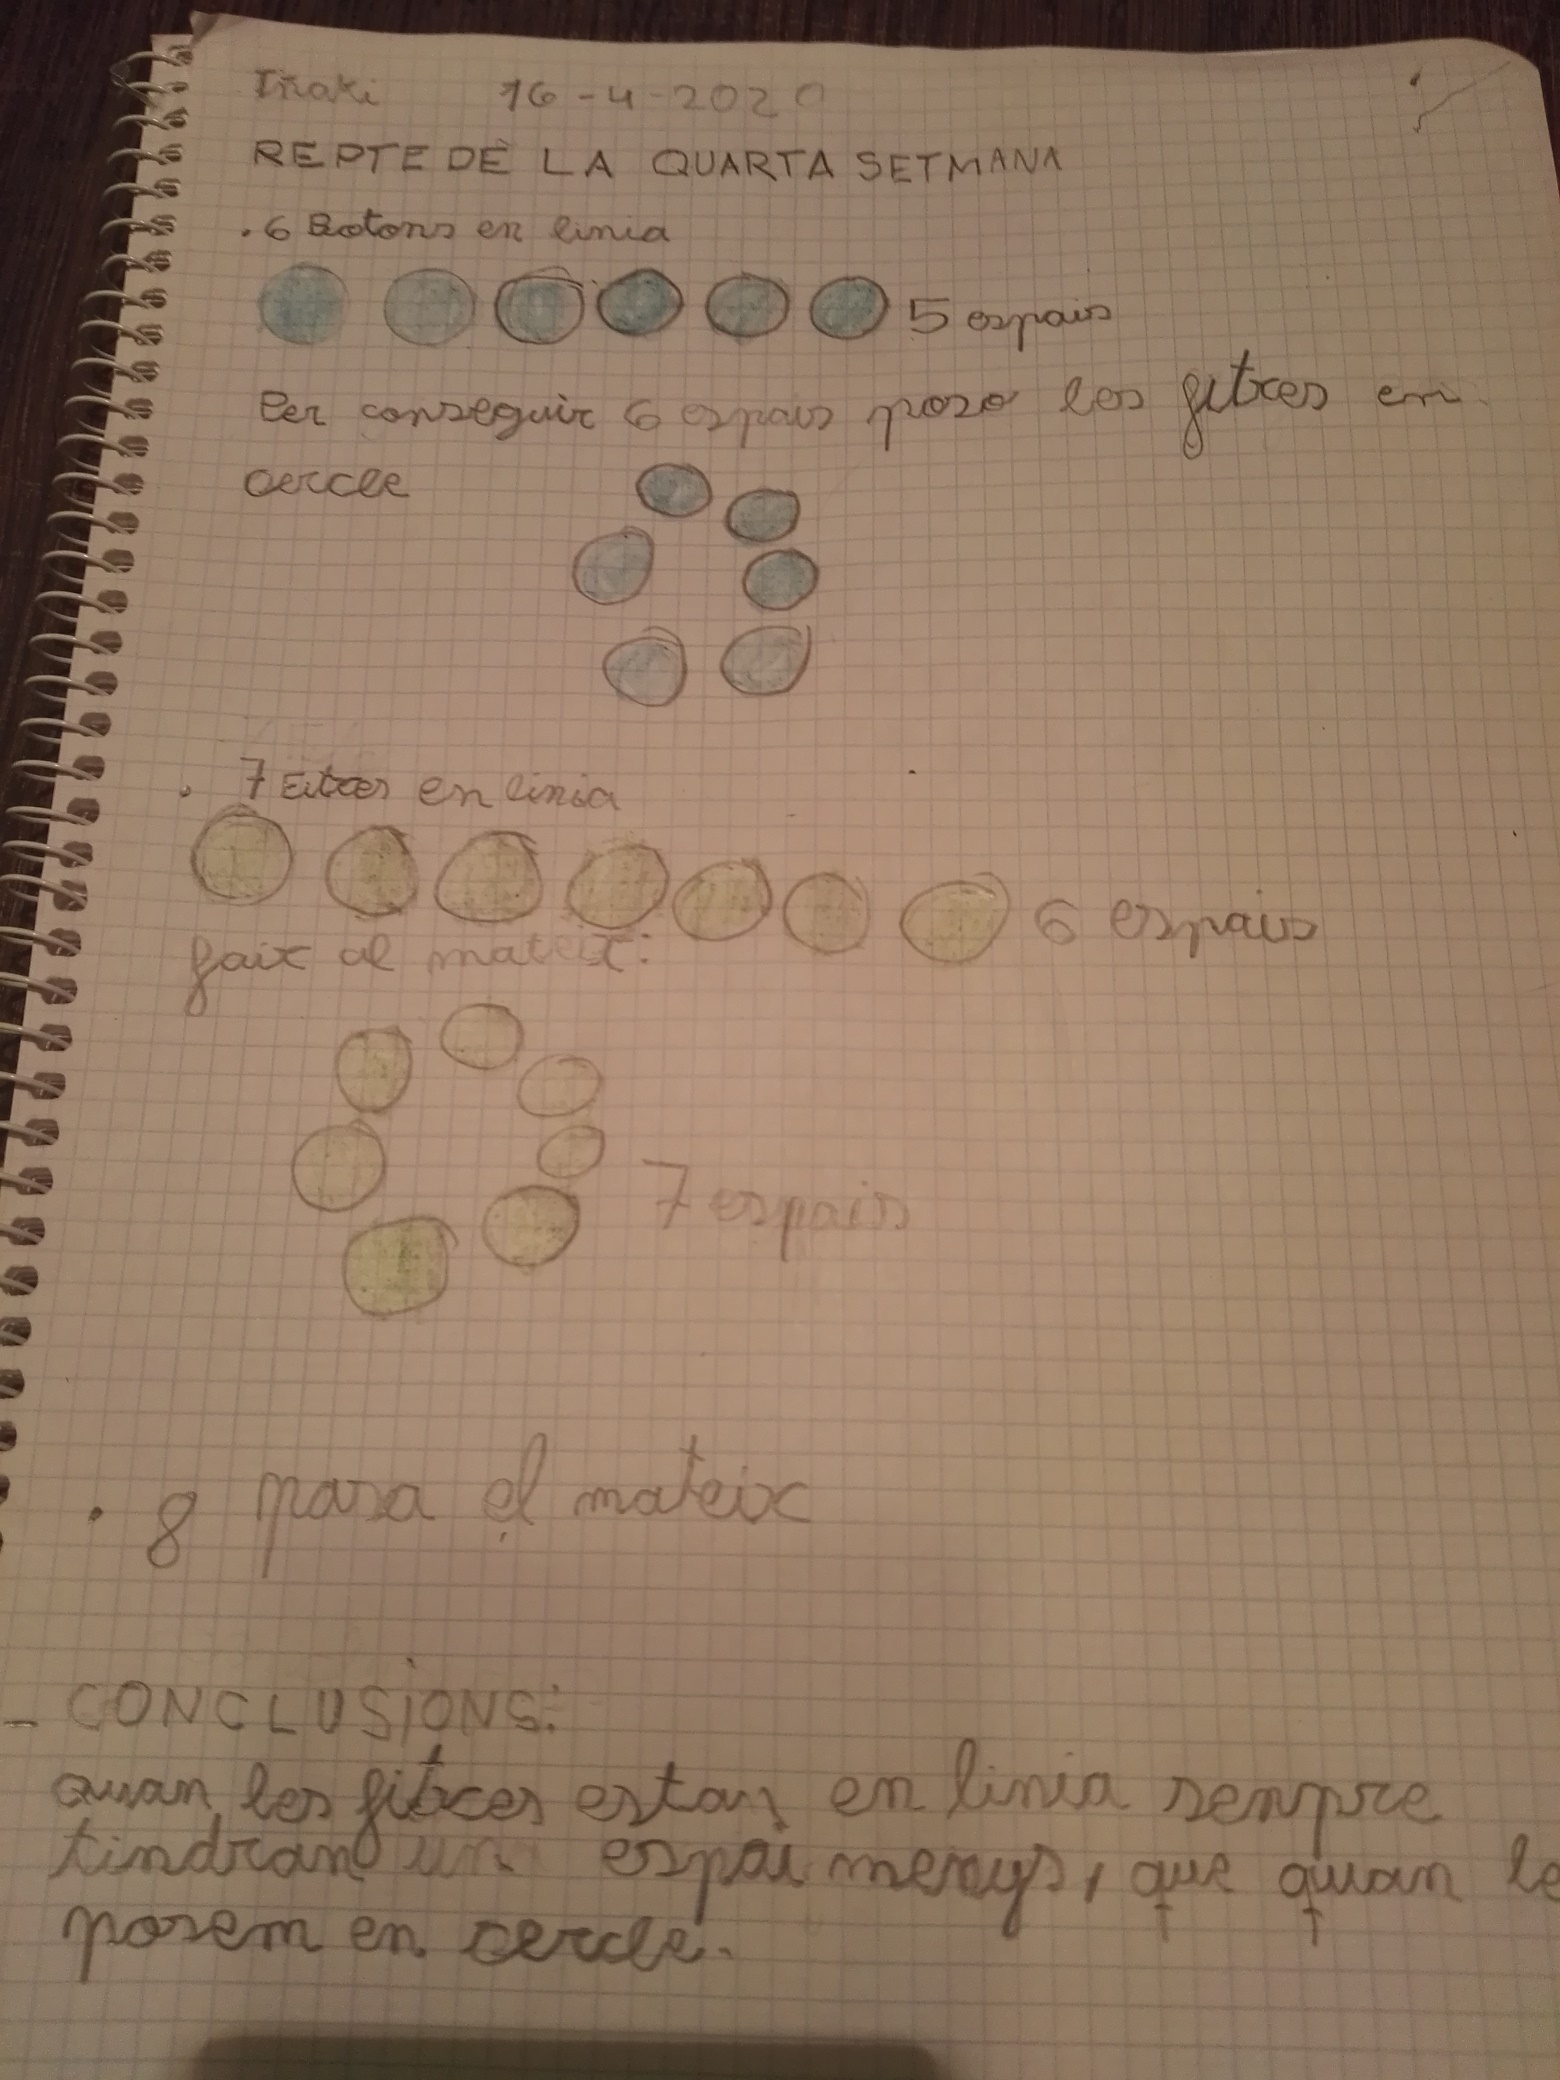 Iñaki 16-4-2020
REPTE DE LA QUARTA SETMANA
. 6 Botons en linia
5 espais
Per conseguir 6 espais poso les fitxes en
cercle
. 7 Fitxes en linia
6 espais
faix al mateix:
7 espais
. 8 pasa el mateix
- CONCLUSIONS:
quan les fitxes estan en linia senpre
tindran un espai menys, que quan le
posem en cercle.